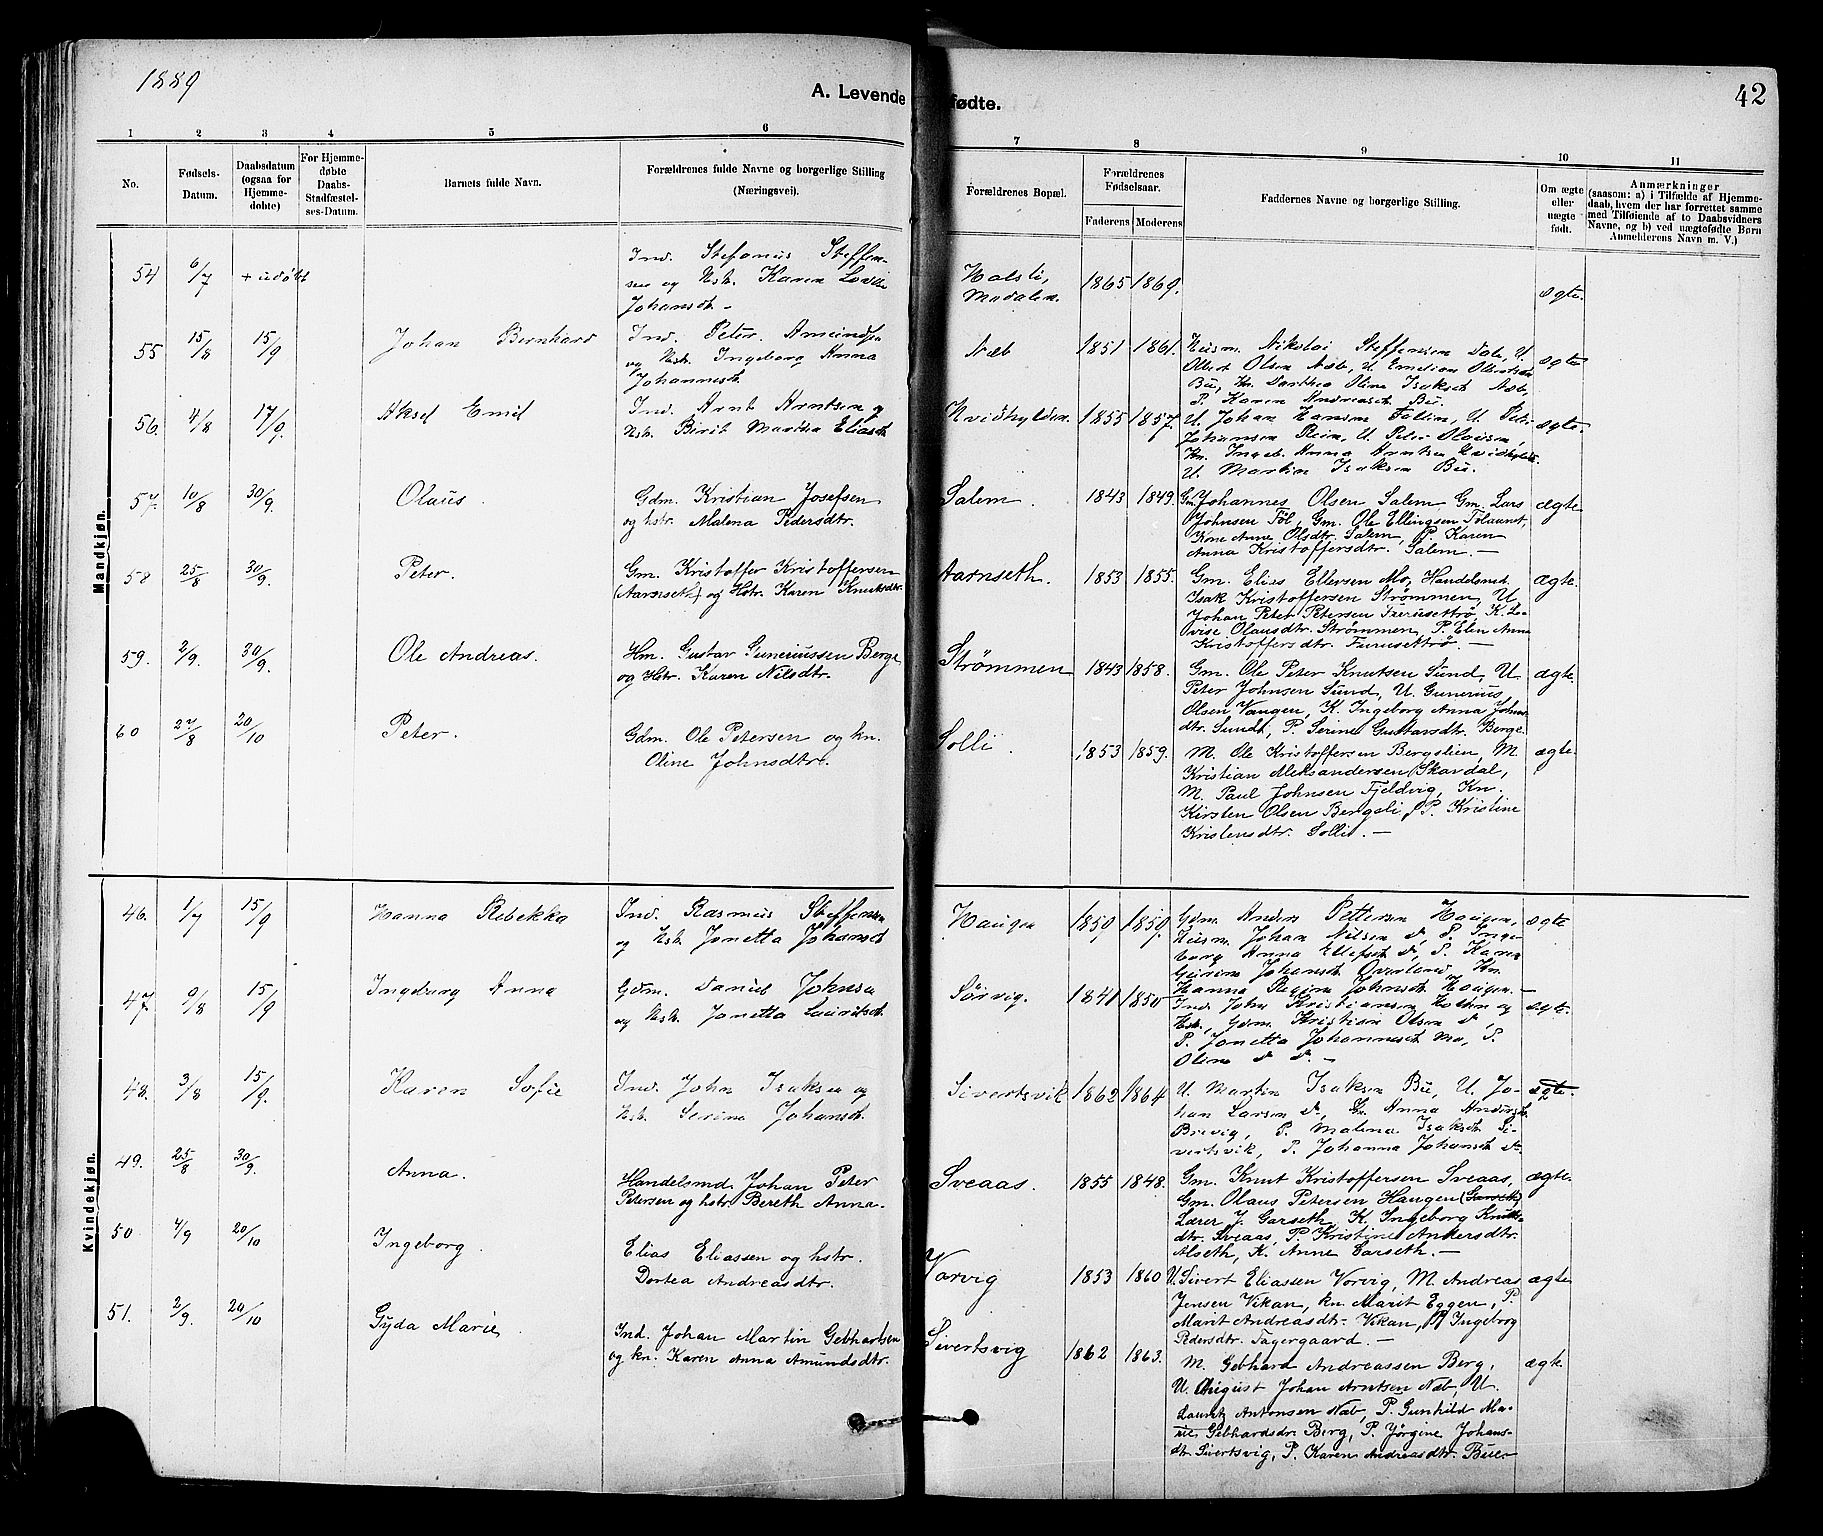 1889
A. Levende fødte.
42
1 2 3 4 5 6 7 8 9 10 11
No.
Fødsels-Datum.
Daabsdatum (ogsaa for Hjemme-døbte)
For Hjemme-døbte Daabs-Stadfæstel-ses-Datum.
Barnets fulde Navn.
Forældrenes fulde Navne og borgerlige Stilling (Næringsvei).
Forældrenes Bopæl.
Forældrenes Fødselsaar.
Faderens Moderens
Faddernes Navne og borgerlige Stilling.
Om ægte eller uægte født.
Anmærkninger (saasom: a) i Tilfælde af Hjemme-daab, hvem der har forrettet samme med Tilføiende af to Daabsvidners Navne, og b) ved uægtefødte Børn Anmelderens Navn m. V.)
Mandkjøn.
54 6/7 + udøbt
Ind. Stefanus Steffen-
sen og Hst. Karen
Johansdt. -
1865 1869.
ægte.
55 15/8 15/9 Johan Bernhard
Ind. Peter
og Hst. Ingeborg Anna
Johannesdt.
Næb 1851 1861.
Husm. Nikolai Steffensen Dale, U.
Albert Olsen Næb, U.
Bu, Kn. Dorthea Oline Isaksdt. Næb,
P. Karen Andreasdt. Bu.
ægte
56. 4/8 17/9. Aksel Emil
Ind. Arnt Arntsen og
Hst. Birit Martha Eliasdt.
Kvidhylden. 1855 1857.
U. Johan Hansen
Johansen Rein, U. Peter
Kn. Ingeb. Anna Arntsen
U. Martin Isaksen Bu.
ægte.
57. 10/8 30/9. Olaus.
Gdm. Kristian Josefsen
og hstr. Malena Pedersdtr.
Salem. 1843 1849.
Gm. Johannes Olsen Salem, Gm. Lars
Johnsen Föl, Gm. Ole Ellingsen
Kone Anne Olsdtr. Salem, P. Karen
Anna Kristoffersdtr. Salem. —
ægte
58 25/8 30/9. Peter.
Gm. Kristoffer Kristoffersen
(Aarnseth) og Hstr. Karen Knutsdtr.
Aarnseth. 1853 1855.
Gm. Elias Ellersen Mo, Handelsmd.
Isak Kristoffersen Strømmen, U.
Johan Peter Petersen Furusettrø, K. Lo-
vise Olausdtr. Strømmen, P. Elen Anna
Kristoffersdtr. Furusettrø. —
ægte.
59. 2/9. 30/9. Ole Andreas.
Hm. Gustav Guneriussen Berge
og Hstr. Karen Nilsdtr.
Strømmen 1843 1858.
Gm. Ole Peter Knutsen Sund, U.
Peter Johnsen Sund, U. Gunerius
Olsen Vaagen, K. Ingeborg Anna Johns-
dtr. Sundt, P. Serine Gustavsdtr. Berge.
ægte.
60 27/8 20/10 Peter.
Gdm. Ole Petersen og kn.
Oline Johnsdtr.
Solli. 1853 1859.
M. Ole Kristoffersen Bergslien, M.
Kristian Aleksandersen Skardal,
M. Paul Johnsen Fjeldvig, Kn.
Kirsten Olsen Bergsli, P. Kristine
Kristensdtr. Solli. —
ægte.
Kvindekjøn.
46. 1/7 15/9 Hanna Rebekka
Ind. Rasmus Steffensen
og Hst. Jonetta Johansdt
Haugen 1859 1859.
Gdm. Anders Pettersen Haugen,
Husm. Johan Nilsen d., P. Inge-
borg Anna Ellefsdt d., P. Karen
Johansdt Overland, Kn.
Hanna Regina Johnsdt Haugen. —
ægte
47. 9/8 15/9 Ingeborg Anna
Gdm. Daniel Johnsen
og Hst. Jonetta Lauritsdt.
Sørvig. 1841 1850
Ind. John Kristiansen og
Hst., Gdm. Kristian Olsen d.,
P. Jonetta Johannesdt Mo, P.
Olina d. d. —
ægte.
48. 3/8 15/9. Karen Sofie
Ind. John Isaksen og
Hst. Serina Johansdt.
Sivertsvik 1862 1864.
U. Martin Isaksen Bu, U. Jo-
han Larsen d., Anna Andersdt.
Brevig, P. Malena Isaksdt. Si-
vertsvik, P. Johanna Johansdt d.
ægte.
49. 25/8 30/9. Anna.
Handelsmd. Johan Peter
Petersen og hstr. Bereth Anna.
Sveaas. 1855 1848.
Gm. Knut Kristoffersen Sveaas,
Gm. Olaus Petersen Haugen (Garseth),
Lærer J. Garseth, K. Ingeborg Knuts-
dtr. Sveaas, P. Kristine Andersdtr.
Alseth, K. Anne Garseth. —
ægte.
50 4/9 20/10 Ingeborg.
Elias Eliassen og hstr.
Dortea Andreasdtr.
Vorvig 1853 1860
U. Sivert Eliassen Vorvig, M. Andreas
Jensen Vikan, kn. Marit Eggen, P.
Marit Andreasdtr. Vikan, P. Ingeborg
Pedersdtr. Fagergaard. —
ægte
51. 2/9. 20/10 Gyda Marie
Ind. Johan Martin Gebhartsen
og kn. Karen Anna Amundsdtr.
Sivertsvig 1862 1863.
M. Gebhard Andreassen Berg,
U. August Johan Arntsen Næb, U.
Lauritz Antonsen Næb, P. Gunhild Ma-
rie Gebhardsdr. Berg, P. Jørgine Johans-
dtr. Sivertsvig, P. Karen Andreasdtr. Bue.
ægte.